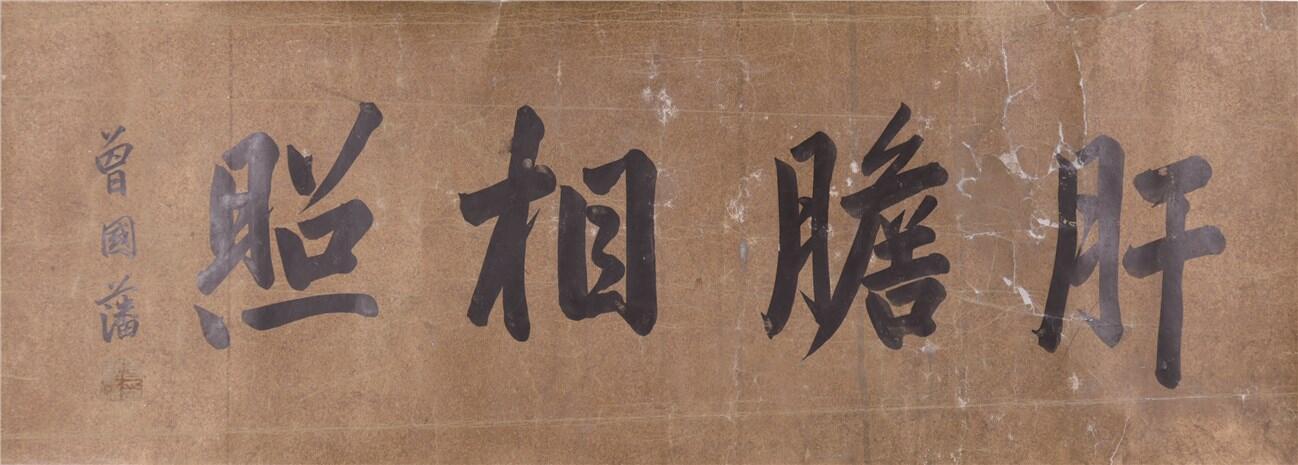 肝膽相照
曾國藩